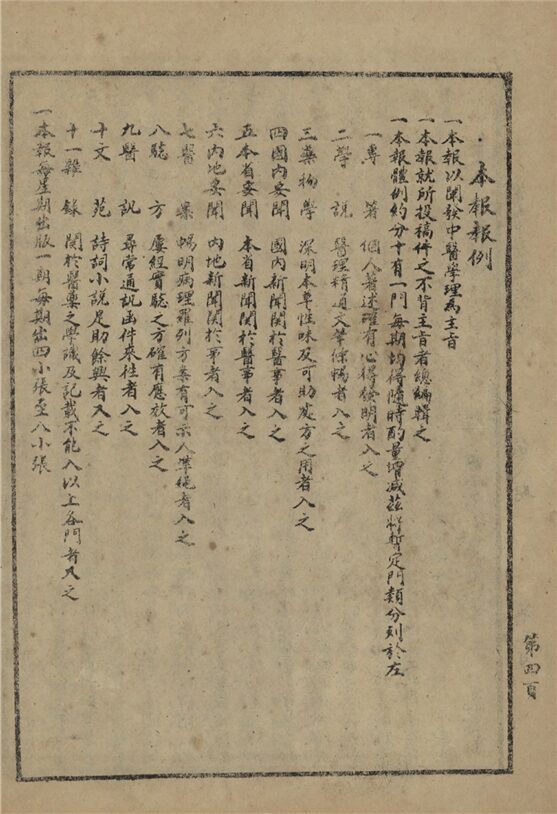 本報報例
一本報以開發中醫學理為主旨
一本報就所投稿件之不背主旨者總編輯之
一本報體例約分十有一門每期均得隨時酌量增减茲暫定門類分列於左
一專著 個人著述確有心得發明者入之
二學說 醫理精通文筆條暢者入之
三藥物學 深明本草性味及可助處方之用者入之
四國內要聞 國內新聞關於醫事者入之
五本省要聞 本省新聞關於醫事者入之
六內地要聞 內地新聞關於事者入之
七醫案 暢明病理羅列方案有可示人準繩者入之
八驗方 屢經實驗之方確有應放者入之
九醫訊 尋常通訊函件來往者入之
十文苑 詩詞小說足助餘興者入之
十一雜錄 關於醫藥之學識及記載不能入以上各門者入之
一本報每星期出版一期每期出四小張至八小張
第四頁